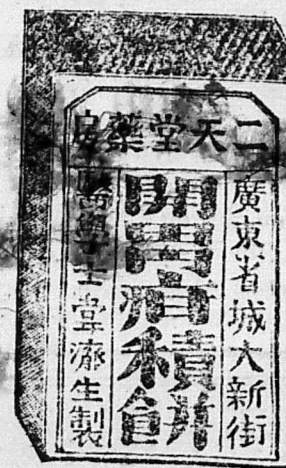 二天堂藥房
廣東省城大新街
開胃消積餅
醫學士韋生製